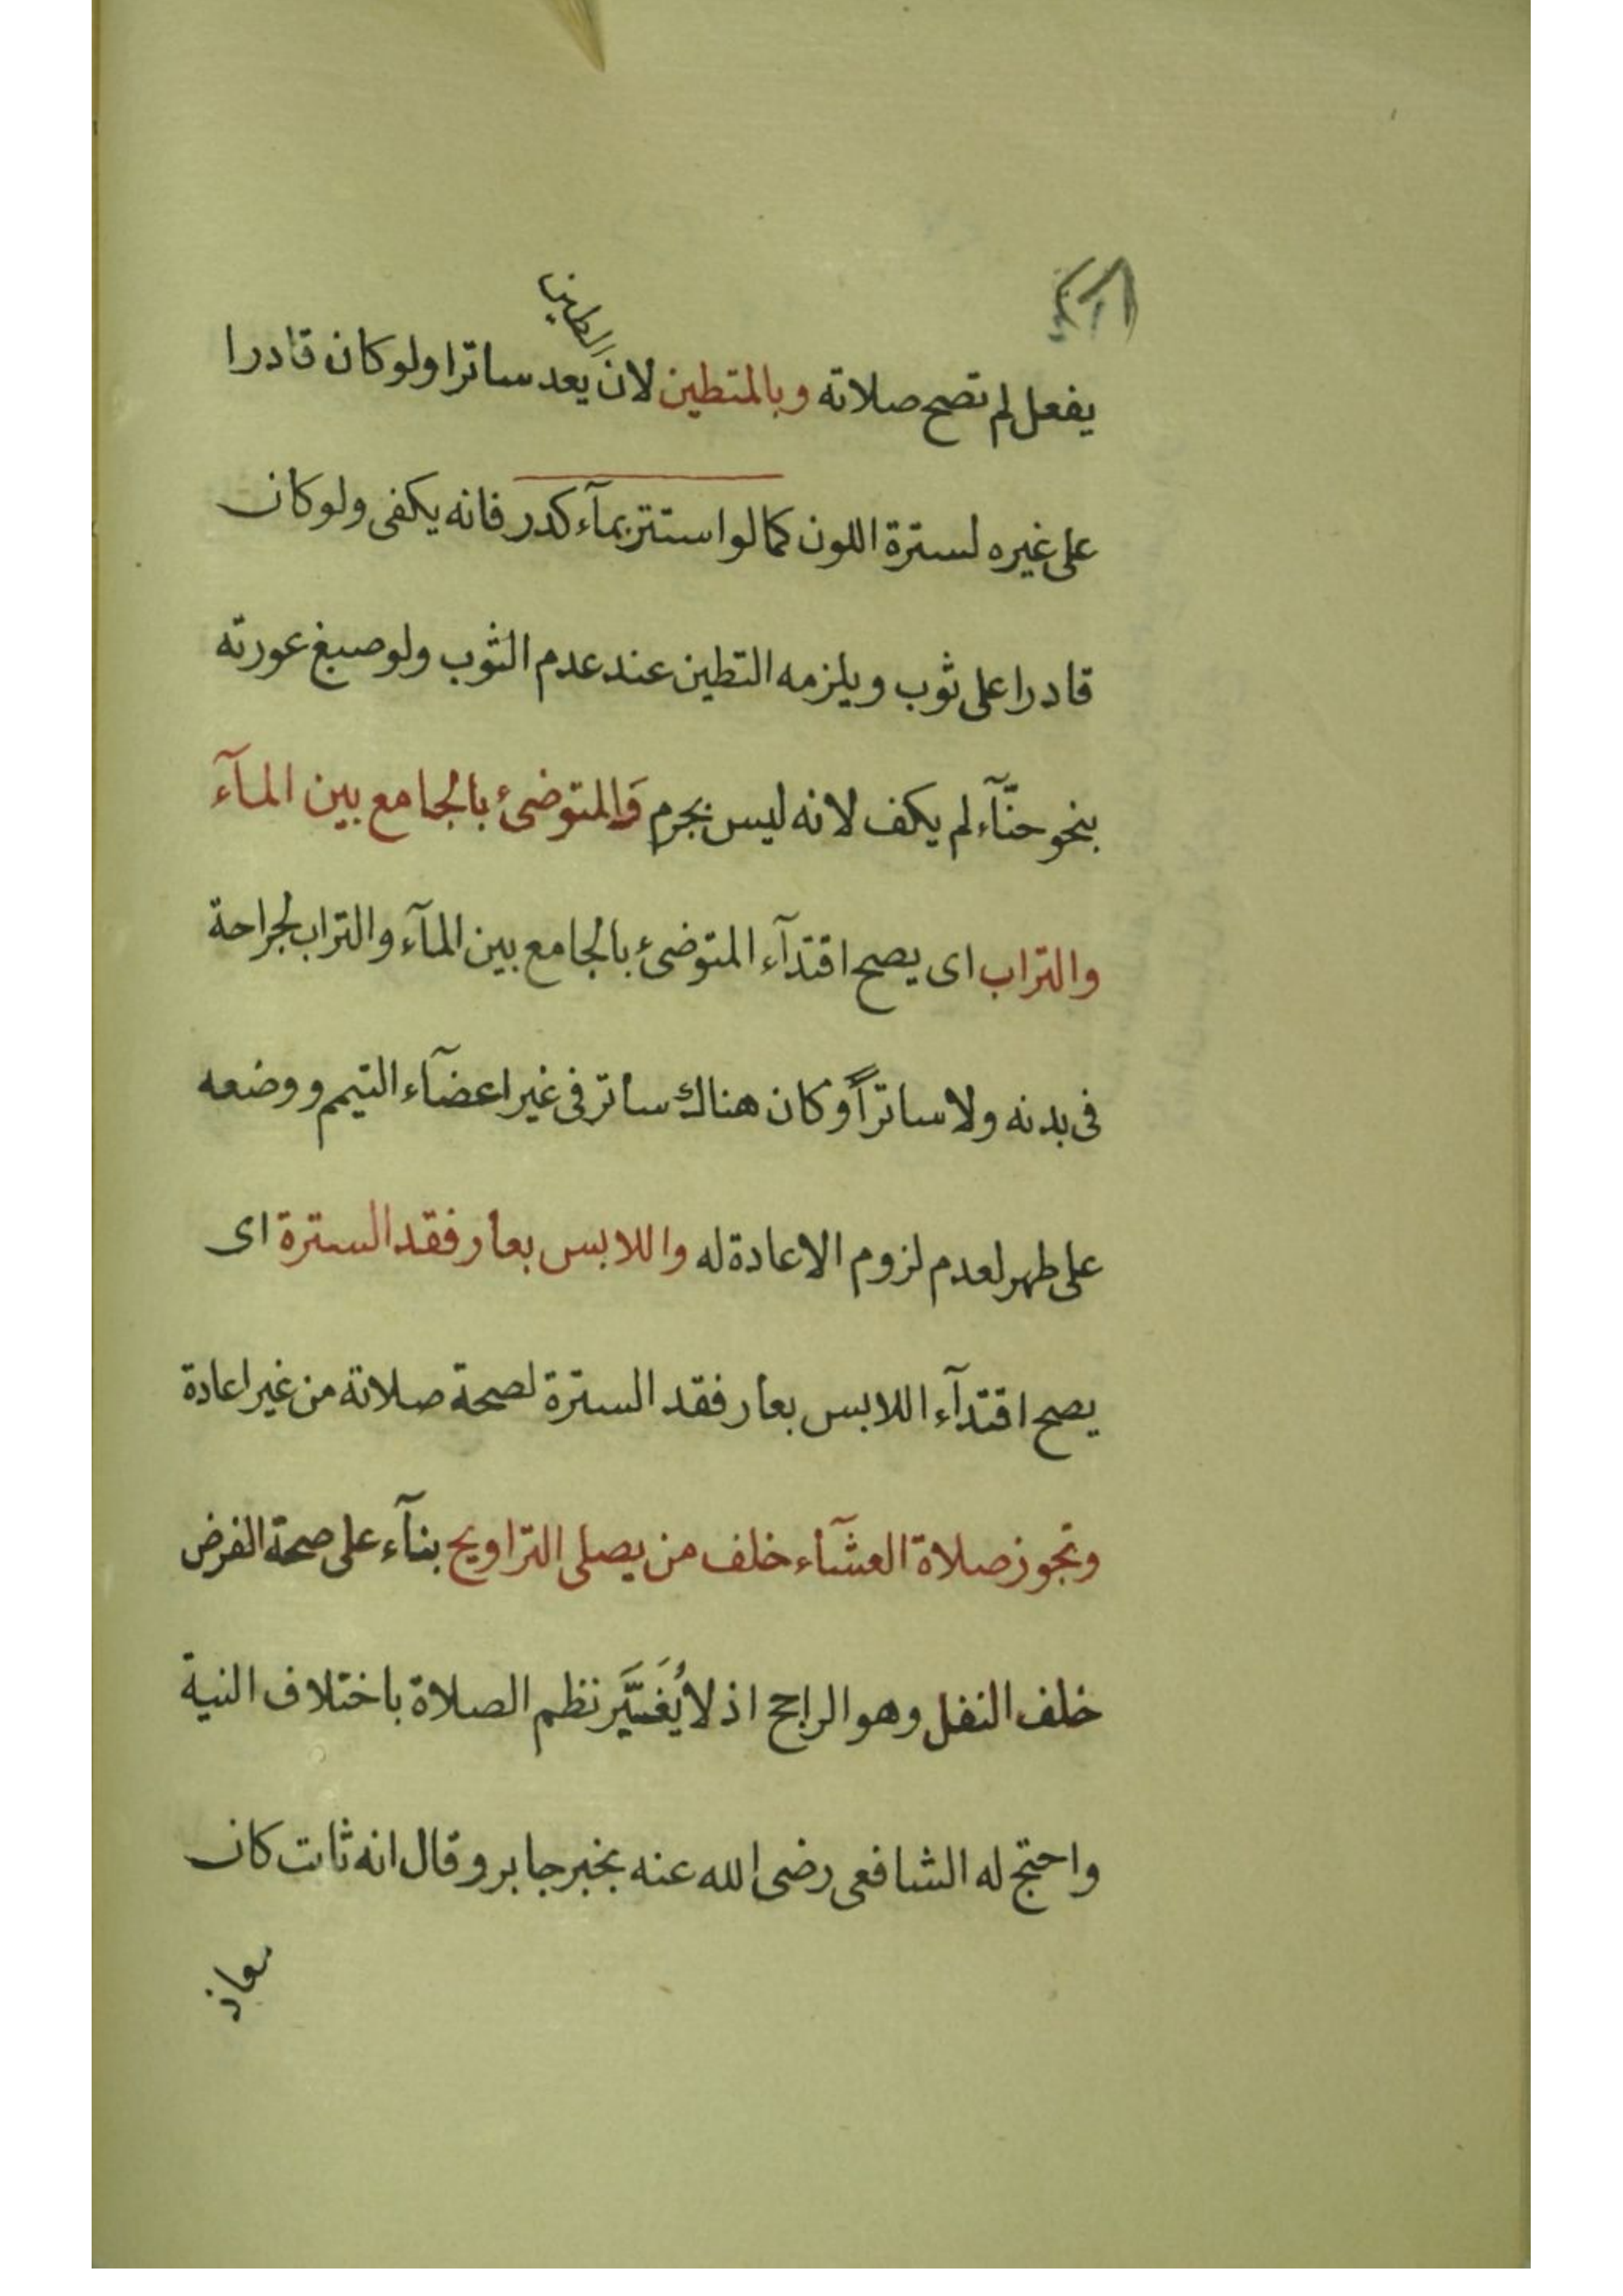 الطين
يفعل لم تصح صلاته وبالمتطين لان يعد ساترا ولو كان قادرا
على غيره لسترة اللون كما لو استتر بمآء كدر فانه يكفى ولو كان
قادرا على ثوب ويلزمه التطين عند عدم الثوب ولو صبغ عورته
بنحو حنّآء لم يكف لانه ليس بجرم والمتوضئ بالجامع بين المآء
والتراب اى يصح اقتدآء المتوضئ بالجامع بين المآء والتراب لجراحة
فى بدنه ولا ساتراً وكان هناك ساتر فى غير اعضآء التيمم ووضعه
على طهر لعدم لزوم الاعادة له واللابس بعار فقد السترة اى
يصح اقتدآء اللابس بعار فقد السترة لصحة صلاته من غير اعادة
وتجوز صلاة العشآء خلف من يصلى التراويح بنآء على صحة الفرض
خلف النفل وهو الراجح اذ لا يُغَيَّر نظم الصلاة باختلاف النية
واحتج له الشافعى رضى الله عنه بخبر جابر وقال انه ثابت كان
معاذ